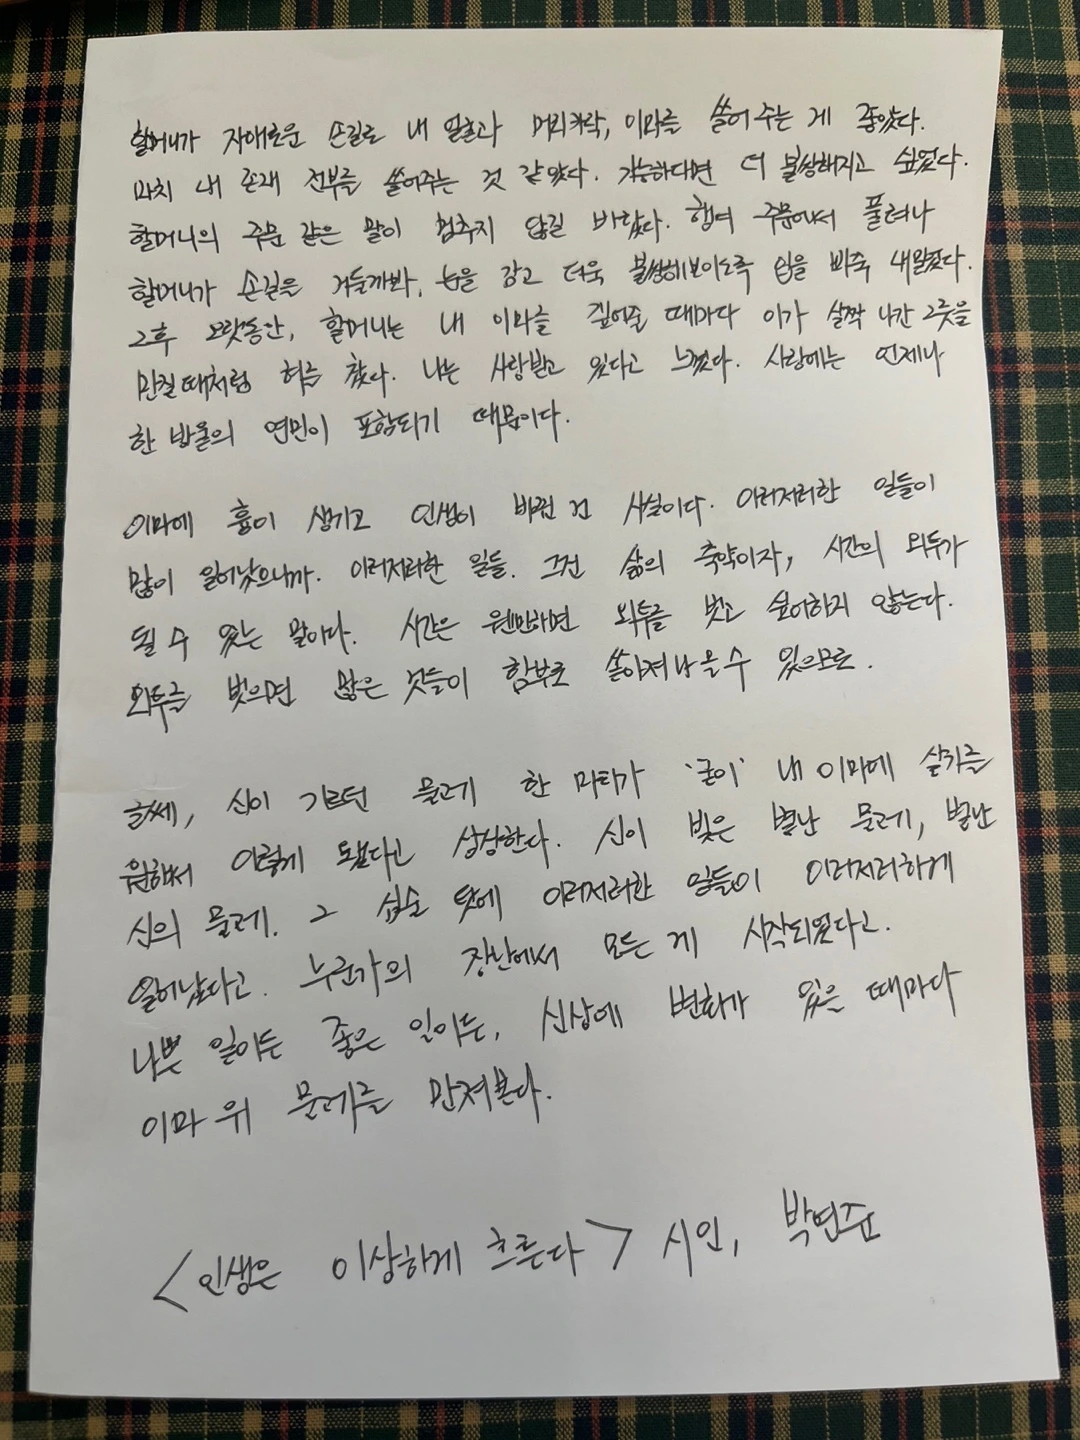 할머니가 자애로운 손길로 내 얼굴과 머리카락, 이마를 쓸어 주는 게 좋았다.
마치 내 존재 전부를 쓸어주는 것 같았다. 가능하다면 더 불쌍해지고 싶었다.
할머니의 주문 같은 말이 멈추지 않길 바랐다. 행여 주문에서 풀려나
할머니가 손길을 거둘까봐, 눈을 감고 더욱 불쌍해보이도록 입을 삐죽 내밀었다.
그후 오랫동안, 할머니는 내 이마를 짚어줄 때마다 이가 살짝 나간 그릇을
만질 때처럼 혀를 찼다. 나는 사랑받고 있다고 느꼈다. 사랑에는 언제나
한 방울의 연민이 포함되기 때문이다.
이마에 흉이 생기고 인생이 바뀐 건 사실이다. 이러저러한 일들이
많이 일어났으니까. 이러저러한 일들. 그건 삶의 축약이자, 시간의 외투가
될 수 있는 말이다. 시간은 웬만하면 외투를 벗고 싶어하지 않는다.
외투를 벗으면 많은 것들이 함부로 쏟아져나올 수 있으므로.
글쎄, 신이 기르던 물고기 한 마리가 '굳이' 내 이마에 살기를
원해서 이렇게 됐다고 상상한다. 신이 빚은 별난 물고기, 별난
신의 물고기. 그 심술 탓에 이러저러한 일들이 이러저러하게
일어났다고. 누군가의 장난에서 모든 게 시작되었다고.
나쁜 일이든 좋은 일이든, 신상에 변화가 있을 때마다
이마 위 물고기를 만져본다.
<인생은 이상하게 흐른다> 시인, 박연준